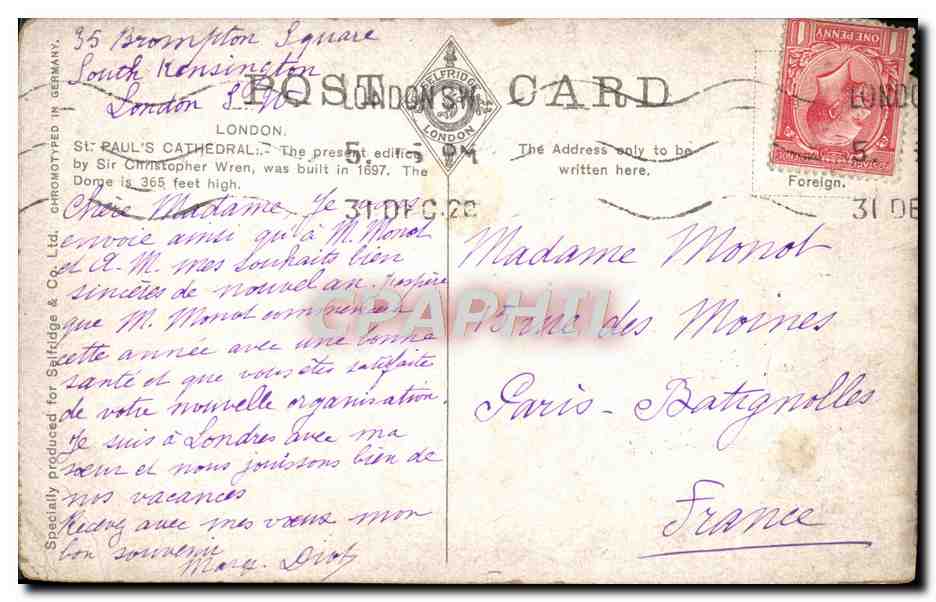 35 Brompton Square
South Kensington
London S.W.
POST CARD
SELFRIDGE
LONDON
LONDON.
St. PAUL'S CATHEDRAL:- The present edifice
by Sir Christopher Wren, was built in 1697. The
Dome is 365 feet high.
The Address only to be
written here.
Foreign.
ONE PENNY
LONDON S.W.
5. 15 PM
31 DEC 20
LONDO
5.
31 DE
Chère Madame, Je vous
envoie ainsi qu'à M. Monot
et A. M. mes souhaits bien
sincères de nouvel an. J'espère
que M. Monot commencera
cette année avec une bonne
santé et que vous êtes satisfaite
de votre nouvelle organisation
Je suis à Londres avec ma
sœur et nous jouissons bien de
nos vacances
Recevez avec mes vœux mon
bon souvenir
Marg. Diot
Madame Monot
15 rue des Moines
Paris - Batignolles
France
Specially produced for Selfridge & Co. Ltd. CHROMOTYPED IN GERMANY.
CPAPHIL